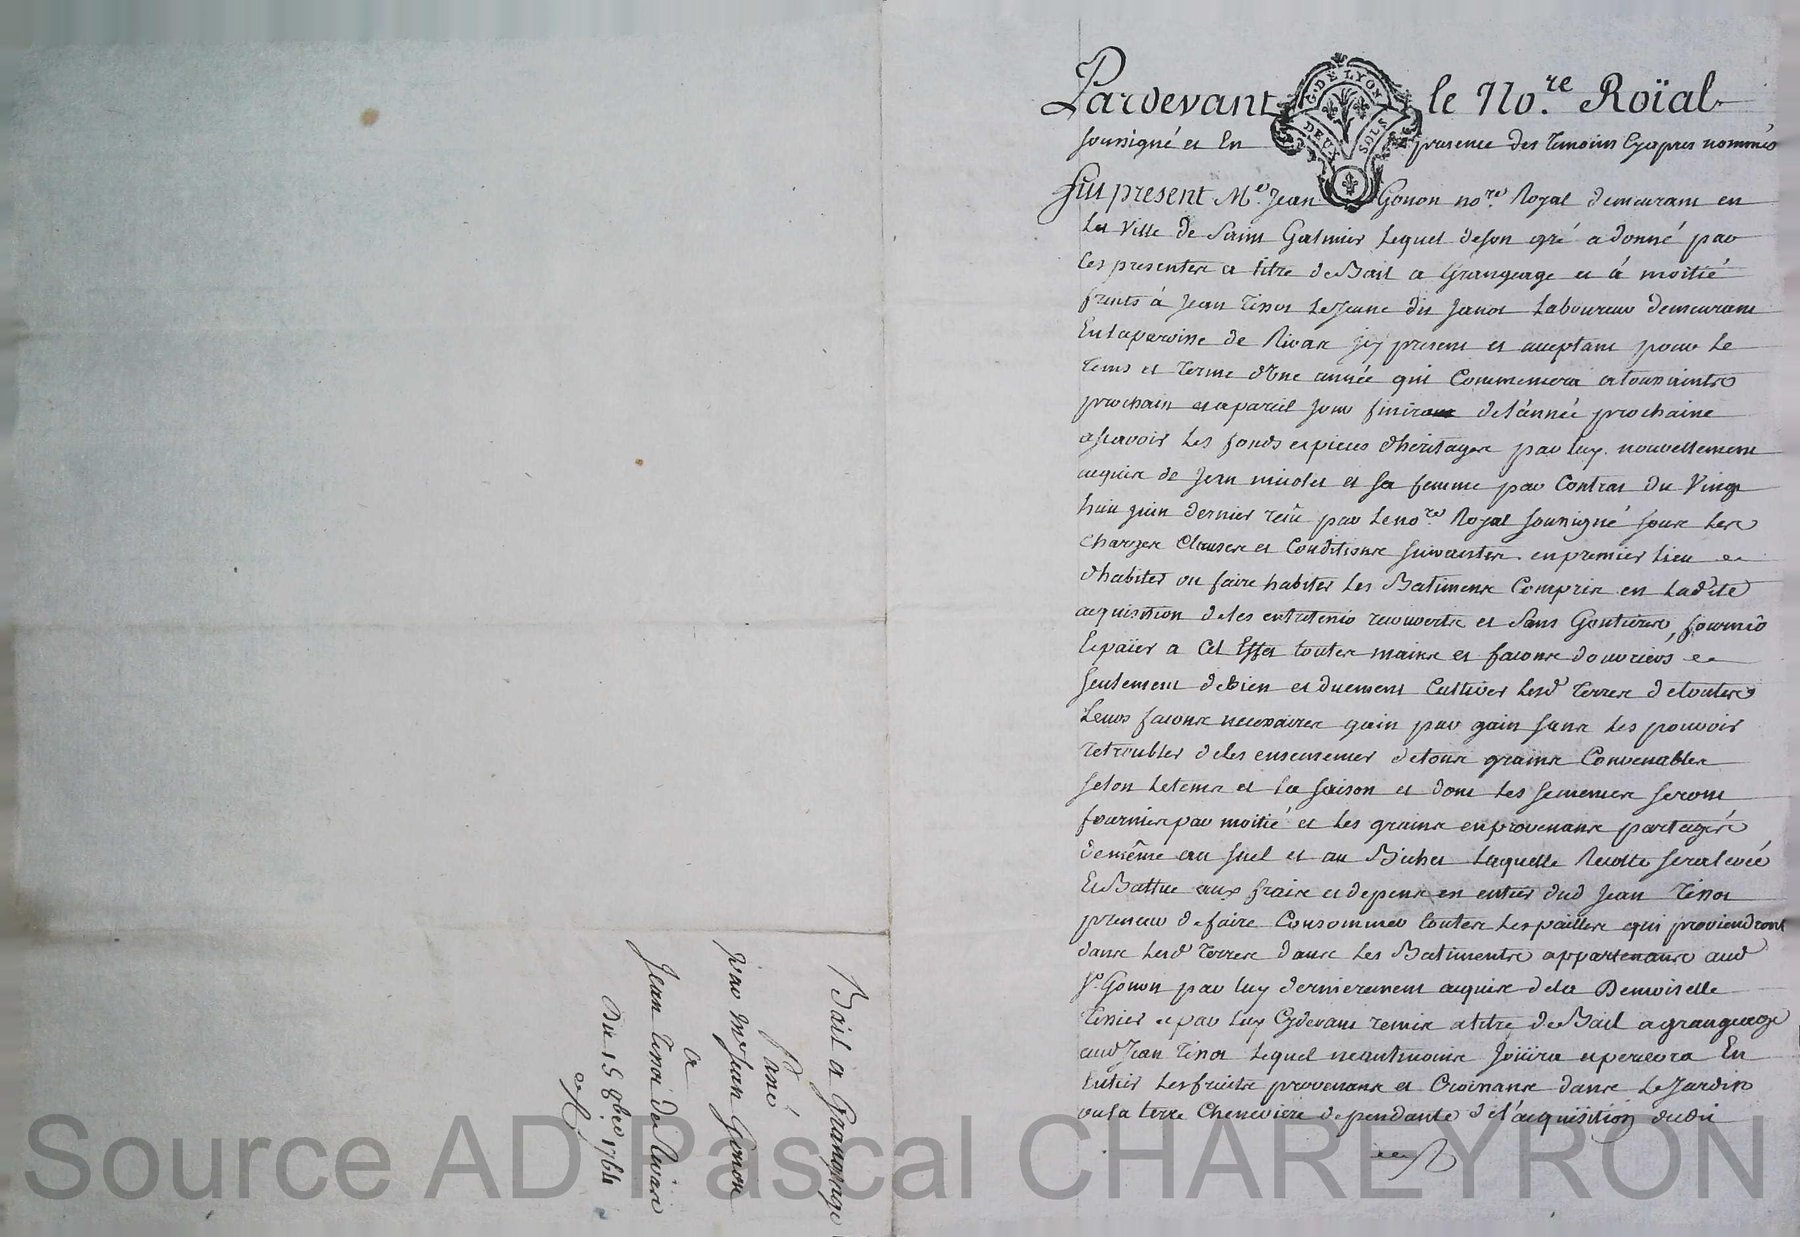 Pardevant le No.re Roïal
soussigné et En presence des temoins Cyapres nommés
fut present Me. Jean Gonon no.re Royal demeurant en
La Ville de Saint Galmier Lequel deson gré a donné par
Ces presentes a titre de Bail a Grangeage et à moitié
fruits à Jean Tissot LeJeune dit Janot Laboureur demeurant
En laparoisse de Rivas jcy present et acceptant pour Le
tems et terme d'Une année qui Commencera atoussaints
prochain et apareil jour finira de l'année prochaine
ascavoir Les fonds et pieces d'heritages par luy nouvellement
acquis de Jean micolet et sa femme par Contrat du Vingt
huit juin dernier recû par Leno.re Royal soussigné sous Les
Charges Clauses et Conditions suivantes en premier Lieu
d'habiter ou faire habiter Les Batimens Compris en Ladite
acquisition deles entretenir recouverts et Sans Goutieres, fournir
Et païer a Cet Effet toutes mains et facons d'ouvriers
seulement de bien et duement Cultiver Lesd terres detoutes
Leurs facons necessaires gain par gain sans Les pouvoir
retroubler deles ensemencer detous grains Convenables
selon Letems et La saison et dont Les semences seront
fournies par moitié et Les grains en provenans partagés
demême au suel et au Bichet Laquelle Recolte sera levée
Et Battue aux frais et depens en entier dud Jean Tissot
preneur de faire Consommer toutes Les pailles qui proviendront
dans Lesd terres dans Les Batiments appartenans aud
Sr. Gonon par luy dernierement acquis dela Demoiselle
Tissier et par Luy Cydevant remis atitre de Bail a grangeage
aud Jean Tissot Lequel neantmoins Joüira et percevra En
Entier Les fruits provenans et Croissans dans LeJardin
ou la terre Cheneviere dependante de l'acquisition dudit
G. DE LYON
DEUX SOLS
Bail a Grangeage
Passé
par Me Jean Gonon
a
Jean Tissot de Rivas
Du 15 9bre 1764
Source AD Pascal CHAREYRON